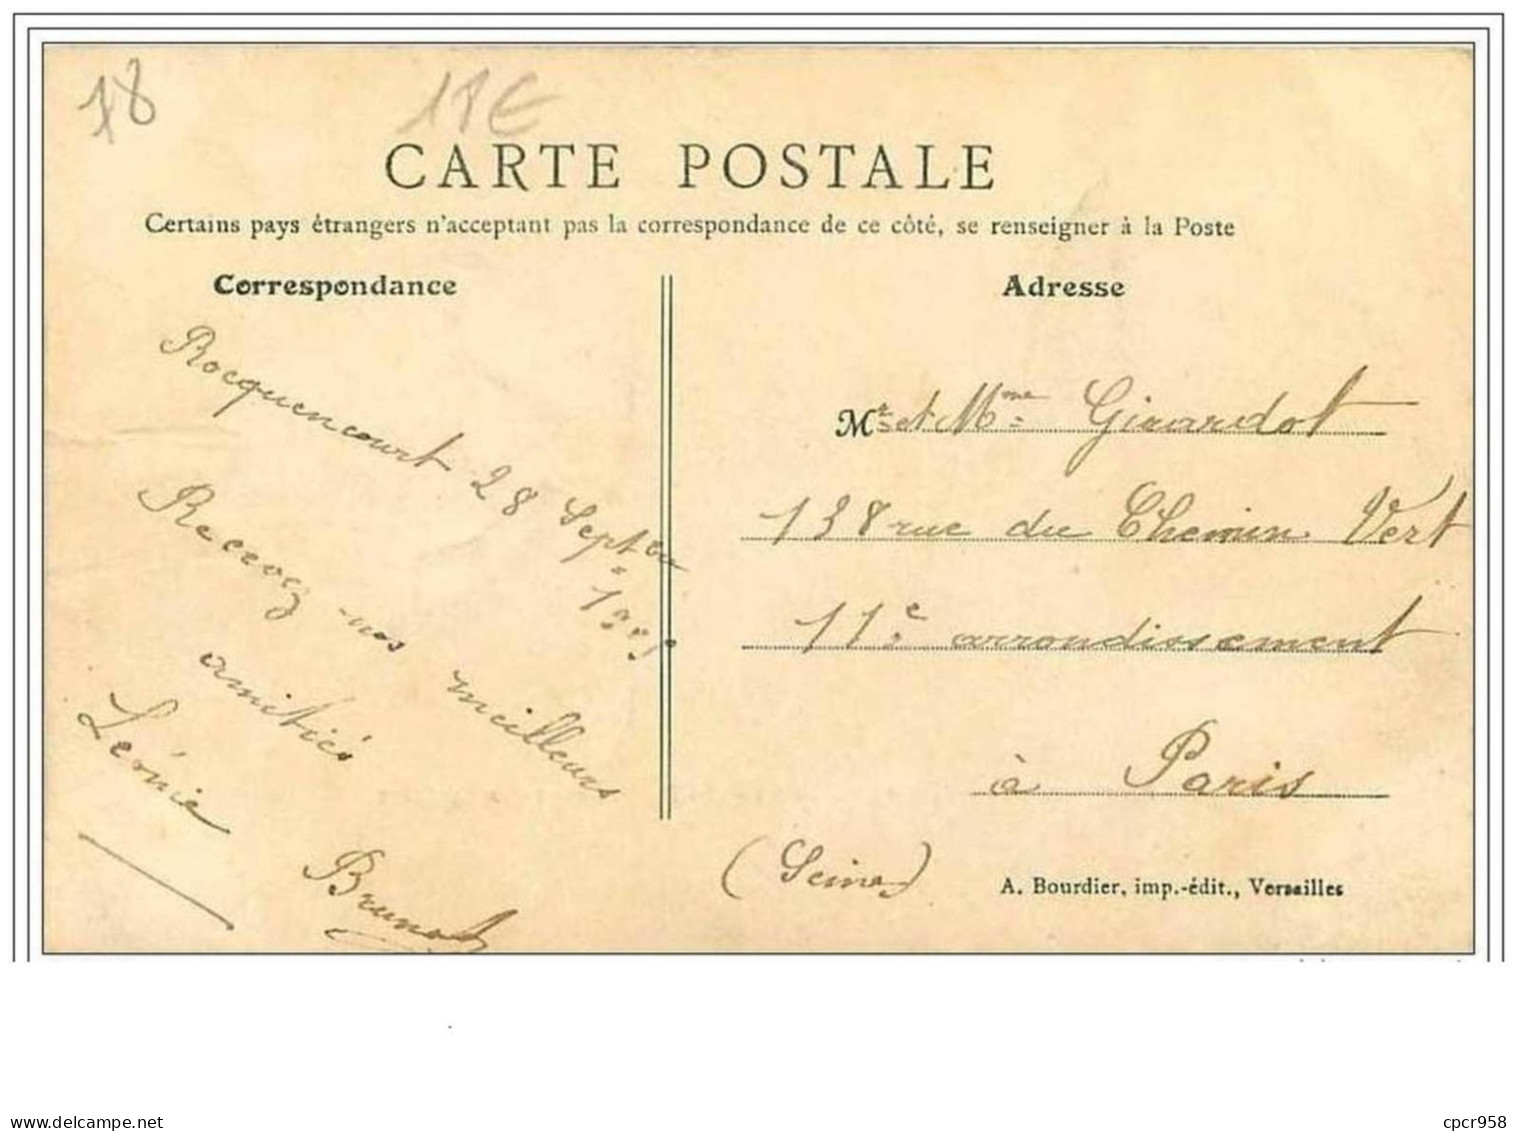 78
18€
CARTE POSTALE
Certains pays étrangers n'acceptant pas la correspondance de ce côté, se renseigner à la Poste
Correspondance
Rocquencourt 28 Septbre
Recevez nos meilleurs
amitiés
Léonie
Brunot
Adresse
Mr et Mme Girardot
138 rue du Chemin Vert
11e arrondissement
à Paris
(Seine)
A. Bourdier, imp.-édit., Versailles
https://www.delcampe.net
cpcr958